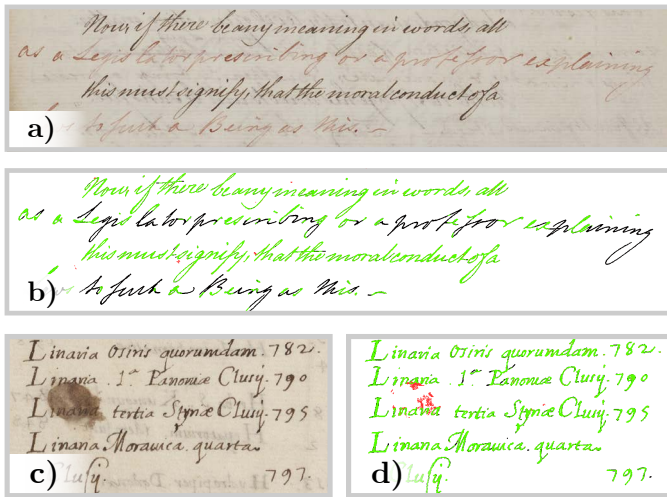 Now, if there be any meaning in words, all
as a Legislator prescribing or a professor explaining
this must signify, that the moral conduct of a
to such a Being as this. —
a)
Now, if there be any meaning in words, all
as a Legislator prescribing or a professor explaining
this must signify, that the moral conduct of a
to such a Being as this. —
b)
Linaria Osiris quorumdam. 782.
Linaria . 1ª Panoniæ Clusij. 790
Linaria tertia Styriæ Clusij. 795
Linaria Moravica. quarta.
Clusij. 797.
c)
Linaria Osiris quorumdam. 782.
Linaria . 1ª Panoniæ Clusij. 790
Linaria tertia Styriæ Clusij. 795
Linaria Moravica. quarta.
Clusij. 797.
d)